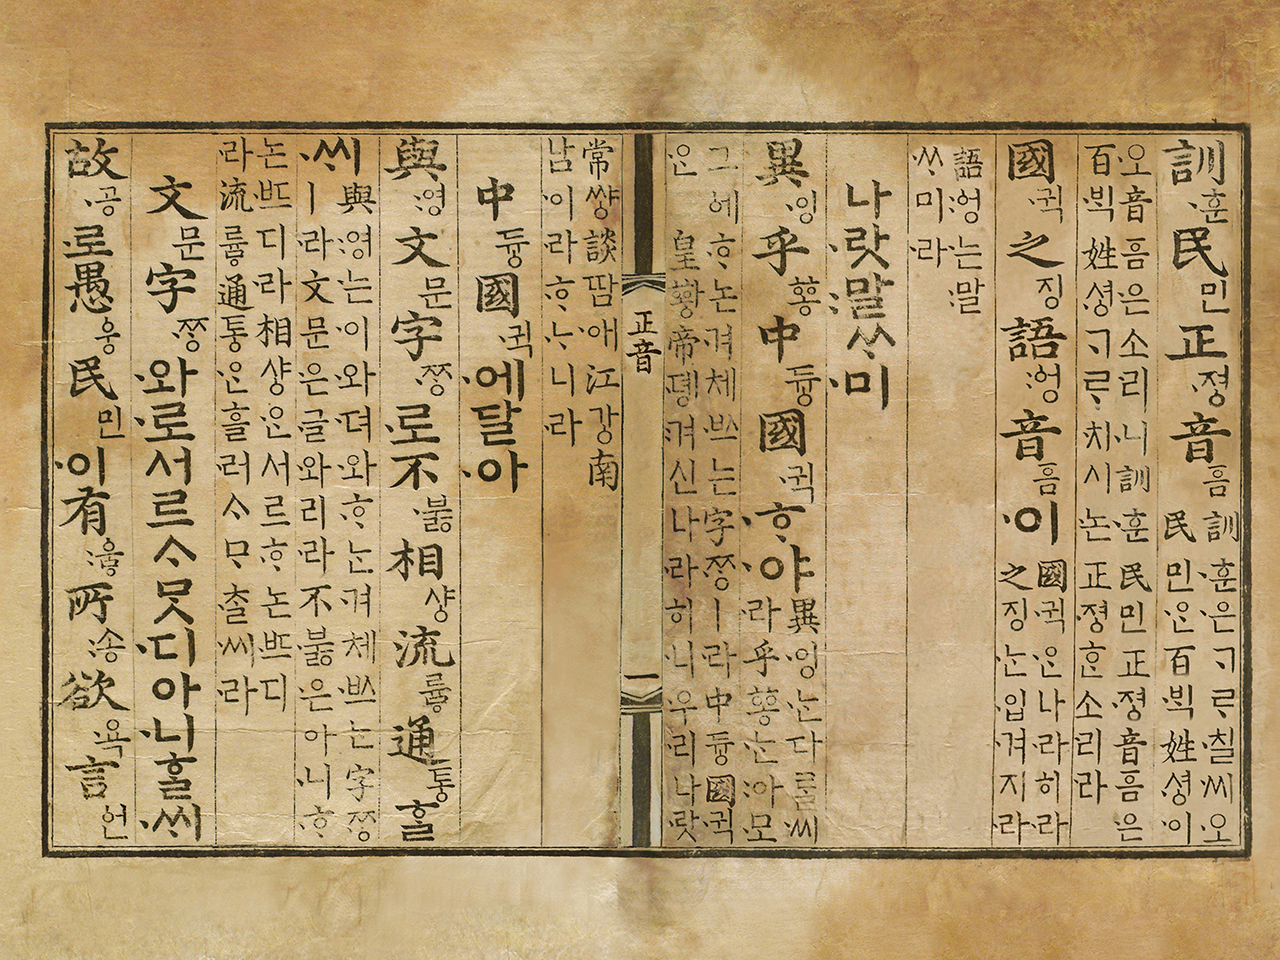 訓훈民민正져ᇰ音ᅙᅳᆷ
訓훈은ᄀᆞᄅᆞ칠씨오
民민ᄋᆞᆫ百ᄇᆡᆨ姓셔ᇰ이
오音ᅙᅳᆷ은소리니訓훈民민正져ᇰ音ᅙᅳᆷ은
百ᄇᆡᆨ姓셔ᇰᄀᆞᄅᆞ치시논正져ᇰᄒᆞᆫ소리라
國귁之징語ᅌᅥᆼ音ᅙᅳᆷ이
國귁ᄋᆞᆫ나라히라
之징ᄂᆞᆫ입겨지라
語ᅌᅥᆼ는말
ᄊᆞ미라
나랏말ᄊᆞ미
異잉乎ᅘᅩᆼ中듀ᇰ國귁ᄒᆞ야
異잉ᄂᆞᆫ다ᄅᆞᆯ씨
라乎ᅘᅩᆼᄂᆞᆫ아모
그ᅌᅦᄒᆞ논겨체ᄡᅳ는字ᄍᆞᆼㅣ라中듀ᇰ國귁
ᄋᆞᆫ皇ᅘᅪᇰ帝뎽겨신나라히니우리나랏
正音
一
常쌰ᇰ談땀애江가ᇰ南
남이라ᄒᆞᄂᆞ니라
中듀ᇰ國귁에달아
與영文문字ᄍᆞᆼ로不부ᇙ相샤ᇰ流류ᇢ通토ᇰᄒᆞᆯ
ᄊᆡ
與영는이와뎌와ᄒᆞᄂᆞᆫ겨체ᄡᅳ는字ᄍᆞᆼ
ㅣ라文문은글와리라不부ᇙ은아니ᄒᆞ
논ᄠᅳ디라相샤ᇰᄋᆞᆫ서르ᄒᆞ논ᄠᅳ디
라流류ᇢ通토ᇰᄋᆞᆫ흘러ᄉᆞᄆᆞᄎᆞᆯ씨라
文문字ᄍᆞᆼ와로서르ᄉᆞᄆᆞᆺ디아니ᄒᆞᆯᄊᆡ
故공로愚ᅌᅮᆼ民민이有우ᇢ所송欲욕言언